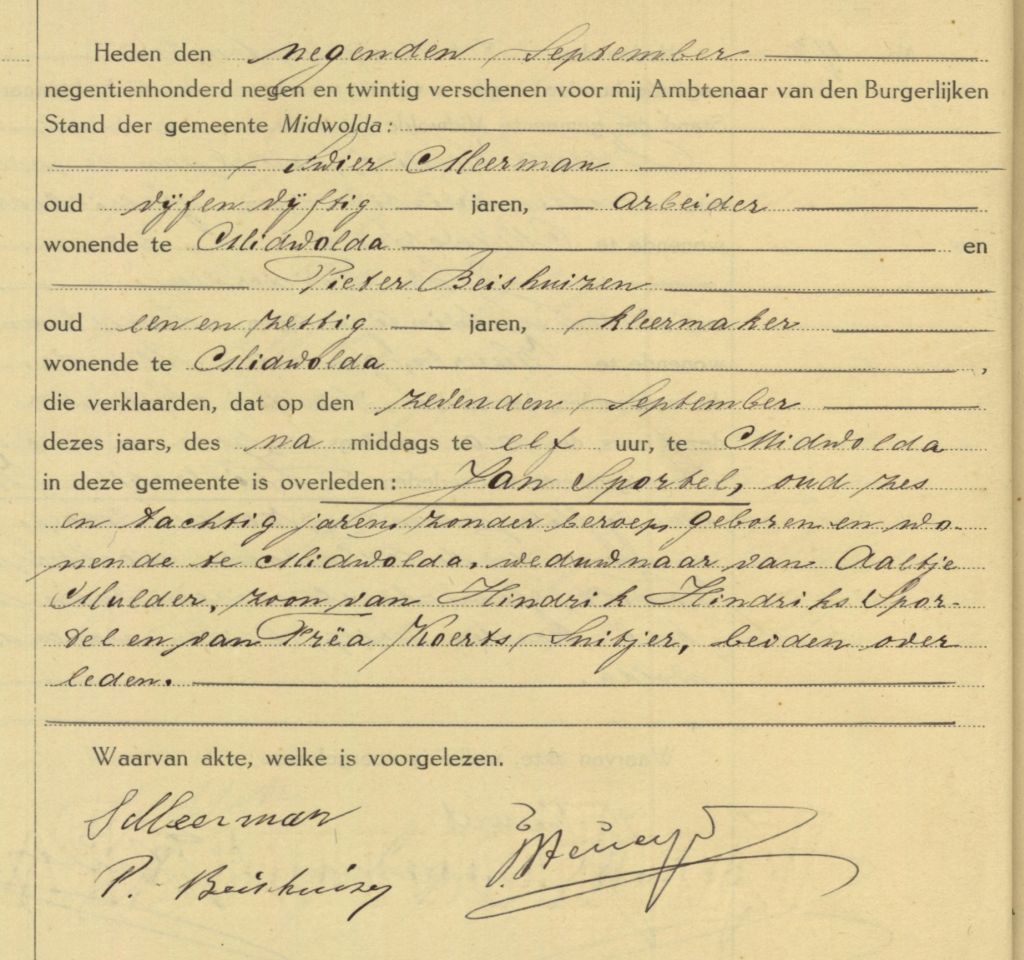 Heden den negenden September
negentienhonderd negen en twintig verschenen voor mij Ambtenaar van den Burgerlijken
Stand der gemeente Midwolda:
Swier Meerman
oud vijf en vijftig jaren, arbeider
wonende te Midwolda en
Pieter Beishuizen
oud een en zestig jaren, kleermaker
wonende te Midwolda,
die verklaarden, dat op den zevenden September
dezes jaars, des na middags te elf uur, te Midwolda
in deze gemeente is overleden: Jan Sportel, oud zes
en tachtig jaren, zonder beroep, geboren en wo-
nende te Midwolda, weduwnaar van Aaltje
Mulder, zoon van Hindrik Hindriks Spor-
tel en van Frëa Koerts Snitjer, beiden over
leden.
Waarvan akte, welke is voorgelezen.
S Meerman
P. Beishuizen